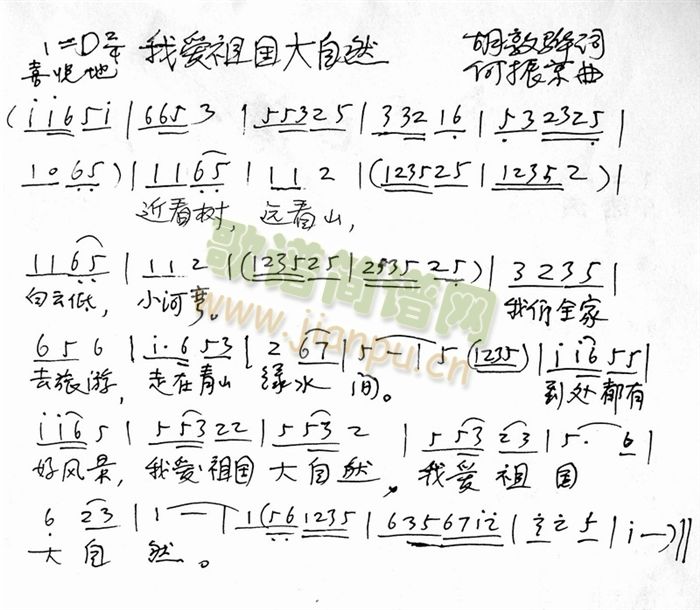 1=D 2/4 我爱祖国大自然 胡敦骅词
喜悦地 何振京曲
(i i 6 5 i | 6 6 5 3 | 5 5 3 2 5 | 3 3 2 1 6 | 5 3 2 3 2 5 |
1 0 6 5) | 1 1 6 5 | 1 1 2 | (1 2 3 5 2 5 | 1 2 3 5 2) |
近看树, 远看山,
1 1 6 5 | 1 1 2 | (1 2 3 5 2 5 | 2 5 3 5 2 5) | 3 2 3 5 |
白云低, 小河弯。 我们全家
6 5 6 | i· 6 5 3 | 2 6 7 | 5 — | 5 (1 2 3 5) | i i 6 5 5 |
去旅游, 走在青山 绿水 间。 到处都有
i i 6 5 | 5 5 3 2 2 | 5 5 3 2 | 5 5 3 2 3 | 5· 6 |
好风景, 我爱祖国 大自然, 我爱 祖 国
6 2 3 | 1 — | 1 (5 6 1 2 3 5 | 6 3 5 6 7 i i | 2 i 5 | i —) ||
大 自 然。
歌谱简谱网
www.jianpu.cn